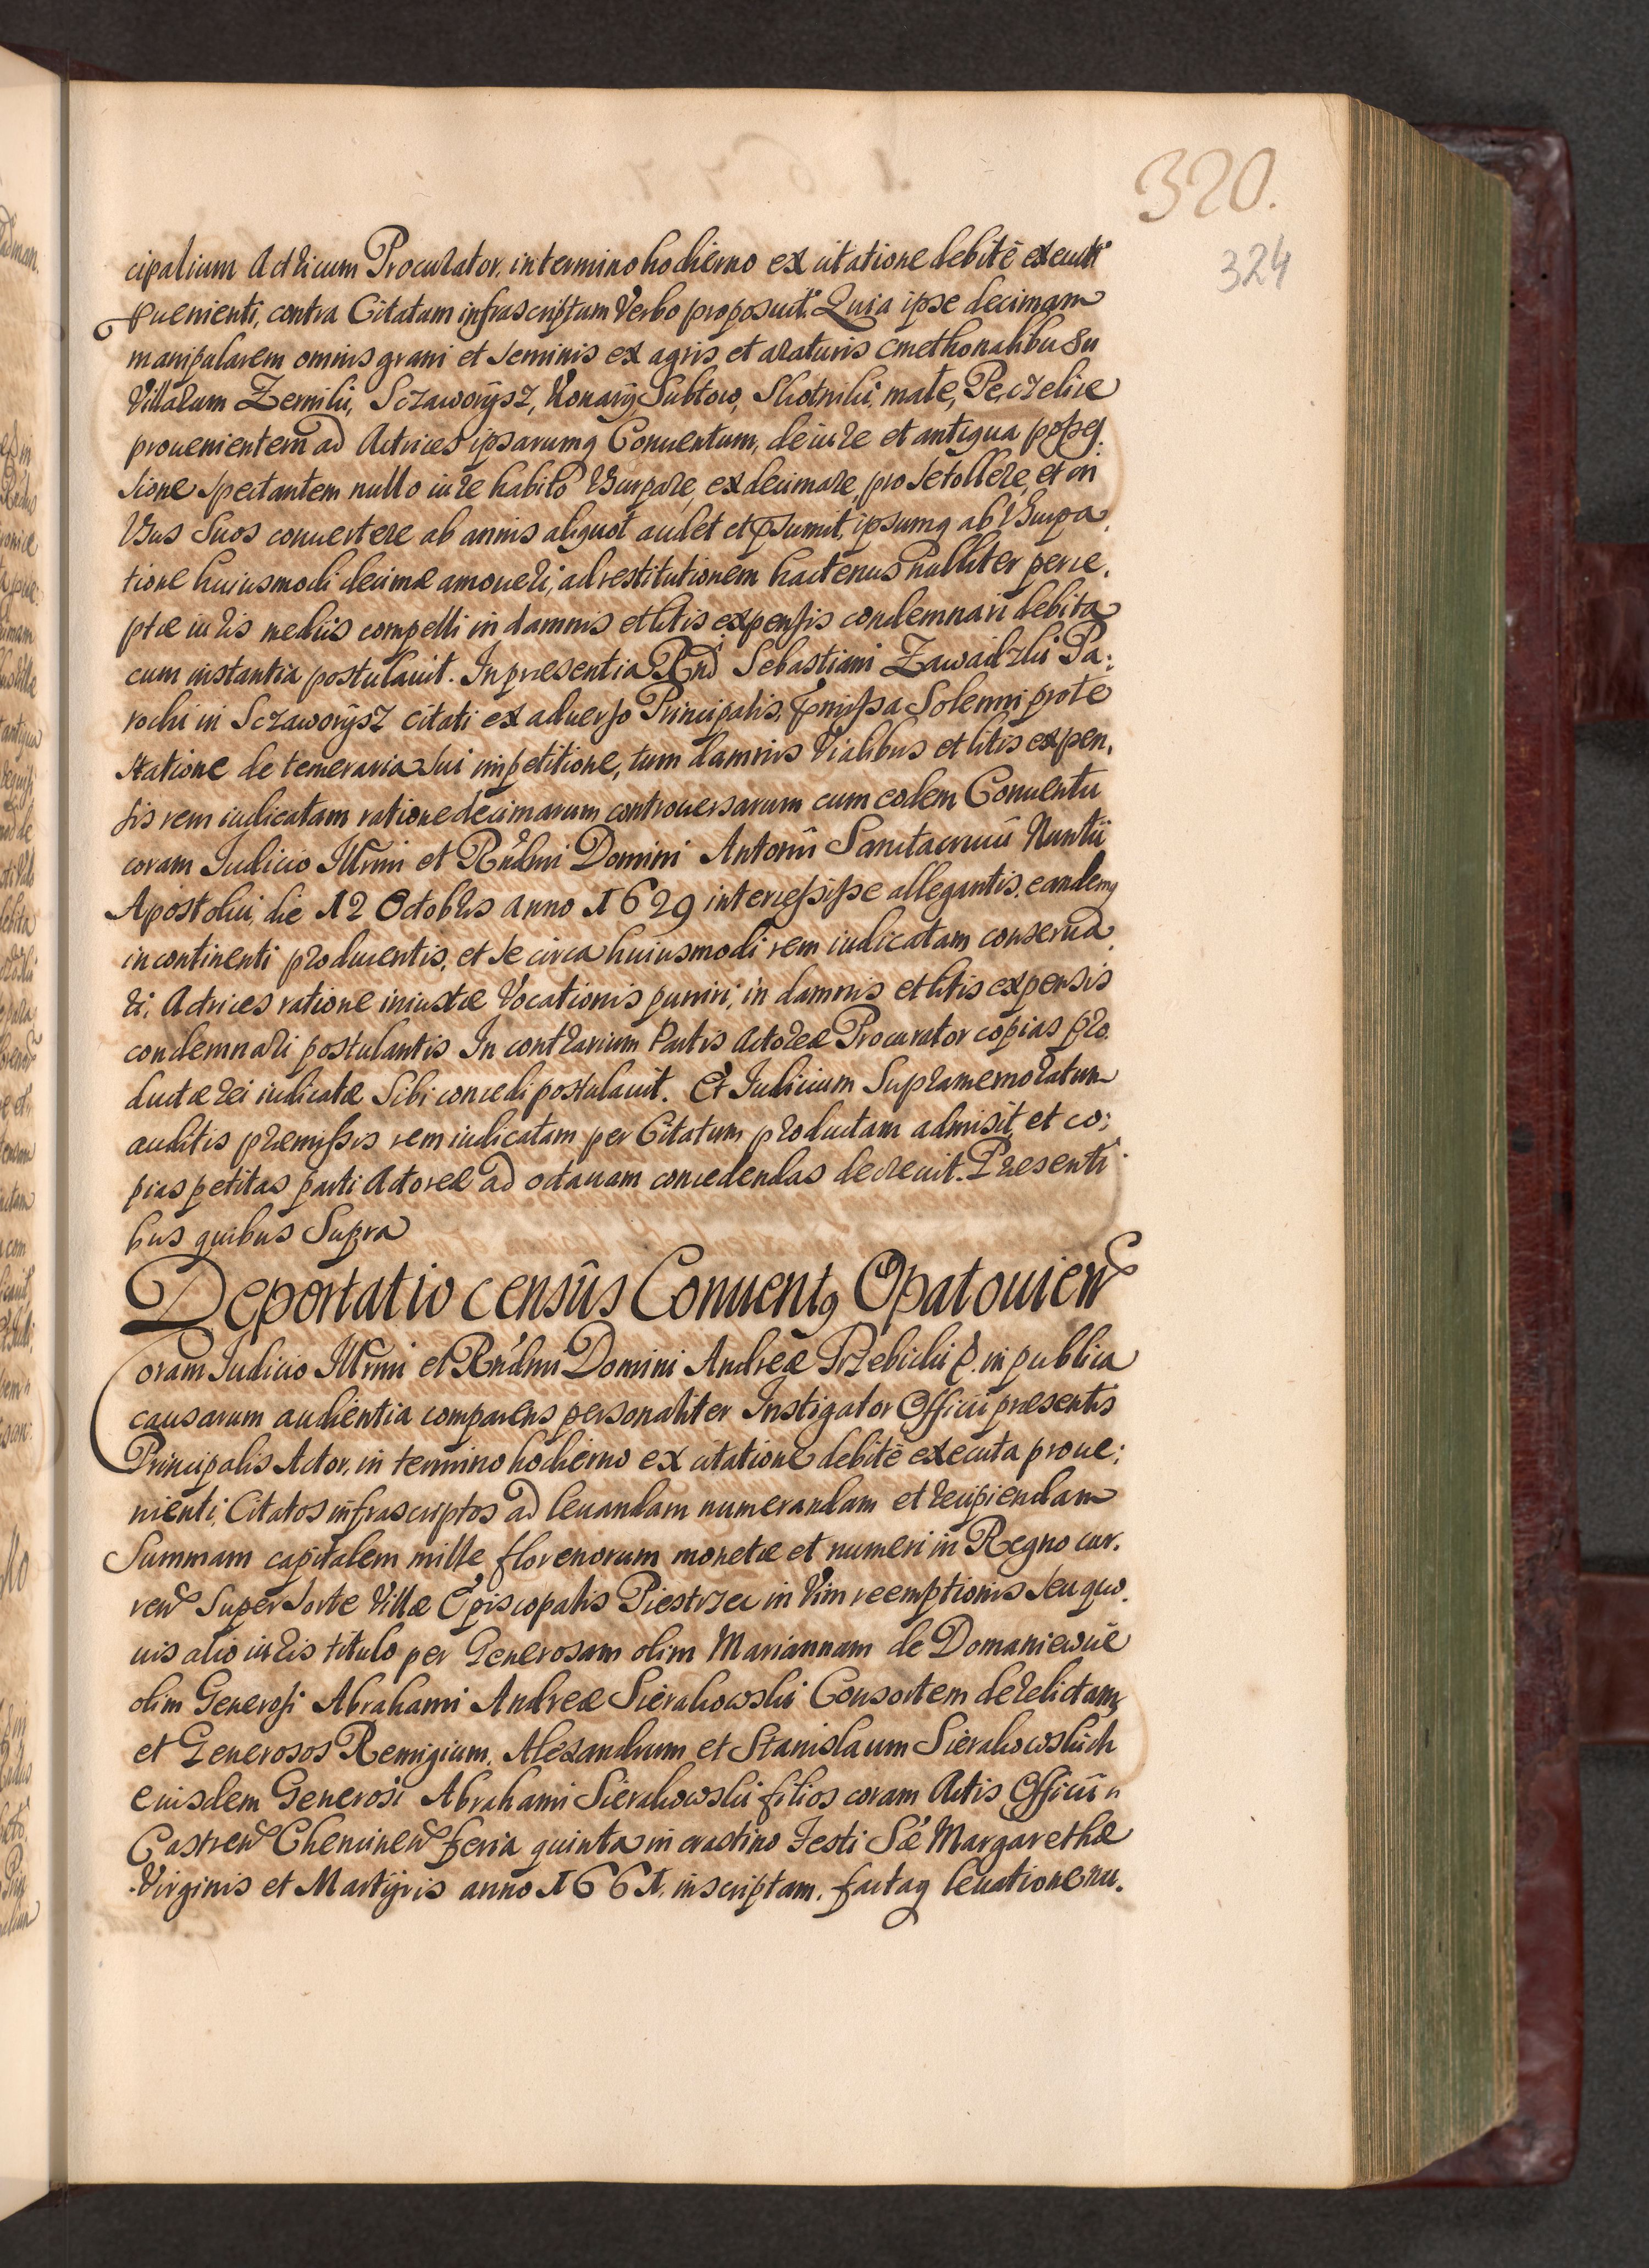 320.
324
cipalium Actricum Procurator, in termino hodierno ex citatione debitè executa
puenienti, contra Citatum infrascriptum Verbo proposuit. Quia ipse decimam
manipularem omnis grani et seminis ex agris et araturis cmethonalibus in
Villarum Zernilii, Sczaworÿsz, Konarÿ, Subtow, Skotniki, małe, Peczelice
prouenientem ad Actrices ipsarumq Conuentum, de iure et antiqua posses:
sione spectantem nullo iure habito Vsurpare, exdecimare, pro se tollere, et in
Vsus Suos conuertere ab annis aliquot audet et psumit, ipsumq ab Vsurpa,
tione huiusmodi decimæ amoueri, ad restitutionem hactenus nulliter perce,
ptæ iuris mediis compelli in damnis et litis expensis condemnari debita
cum instantia postulauit. In præsentia Rndi Sebastiani Zawadzki Pa:
rochi in Sczaworÿsz citati ex aduerso Principalis, præmissa Solenni prote
statione de temeraria sui impetitione, tum damnis Vialibus et litis expen,
sis rem iudicatam ratione decimarum controuersarum cum eodem Conuentu
coram Iudicio Illrmi et Rndmi Domini Antonii Sanctacrucii Nuntii
Apostolici, die 12 Octobris anno 1629 intercessisse allegantis, eandemq
in continenti producentis, et se circa huiusmodi rem iudicatam conserua,
ri, Actrices ratione iniustæ Vocationis puniri, in damnis et litis expensis
condemnari postulantis. In contrarium Partis Actoreæ Procurator copias pro
ductæ rei iudicatæ Sibi concedi postulauit. Et Iudicium Supramemoratum
auditis præmissis rem iudicatam per Citatum productam admisit, et co:
pias petitas parti Actoreæ ad octauam concedendas decreuit. Presenti
bus quibus Supra
Deportatio censûs Conuentq Opatouien
Coram Iudicio Illrmi et Rndmi Domini Andreæ Trzebicki p. in publica
causarum audientia comparens personaliter Instigator Officii præsentis
Principalis Actor, in termino hodierno ex citatione debitè executa proue:
nienti, Citatos infrascriptos ad leuandam numerandam et recipiendam
Summam capitalem mille florenorum monetæ et numeri in Regno cur,
ren Super sorte Villæ Episcopalis Piestrzec in Vim reemptionis seu quo,
uis alio iuris titulo per Generosam olim Mariannam de Domaniewice
olim Generosi Abrahami Andreæ Sierakowski Consortem derelictam,
et Generosos Remigium, Alexandrum et Stanislaum Sierakowskich
eiusdem Generosi Abrahami Sierakowski filios coram Actis Officii
Castren Chencinen feria quinta in crastino Festi Sæ Margarethæ
Virginis et Martÿris anno 1661, inscriptam, factaq leuatione nu,